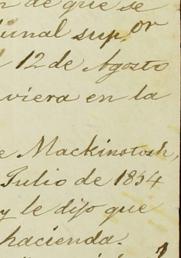 de que se
unal sup.or
12 de Agosto
viera en la
Mackinstosh,
Julio de 1854
y le dijo que
hacienda.